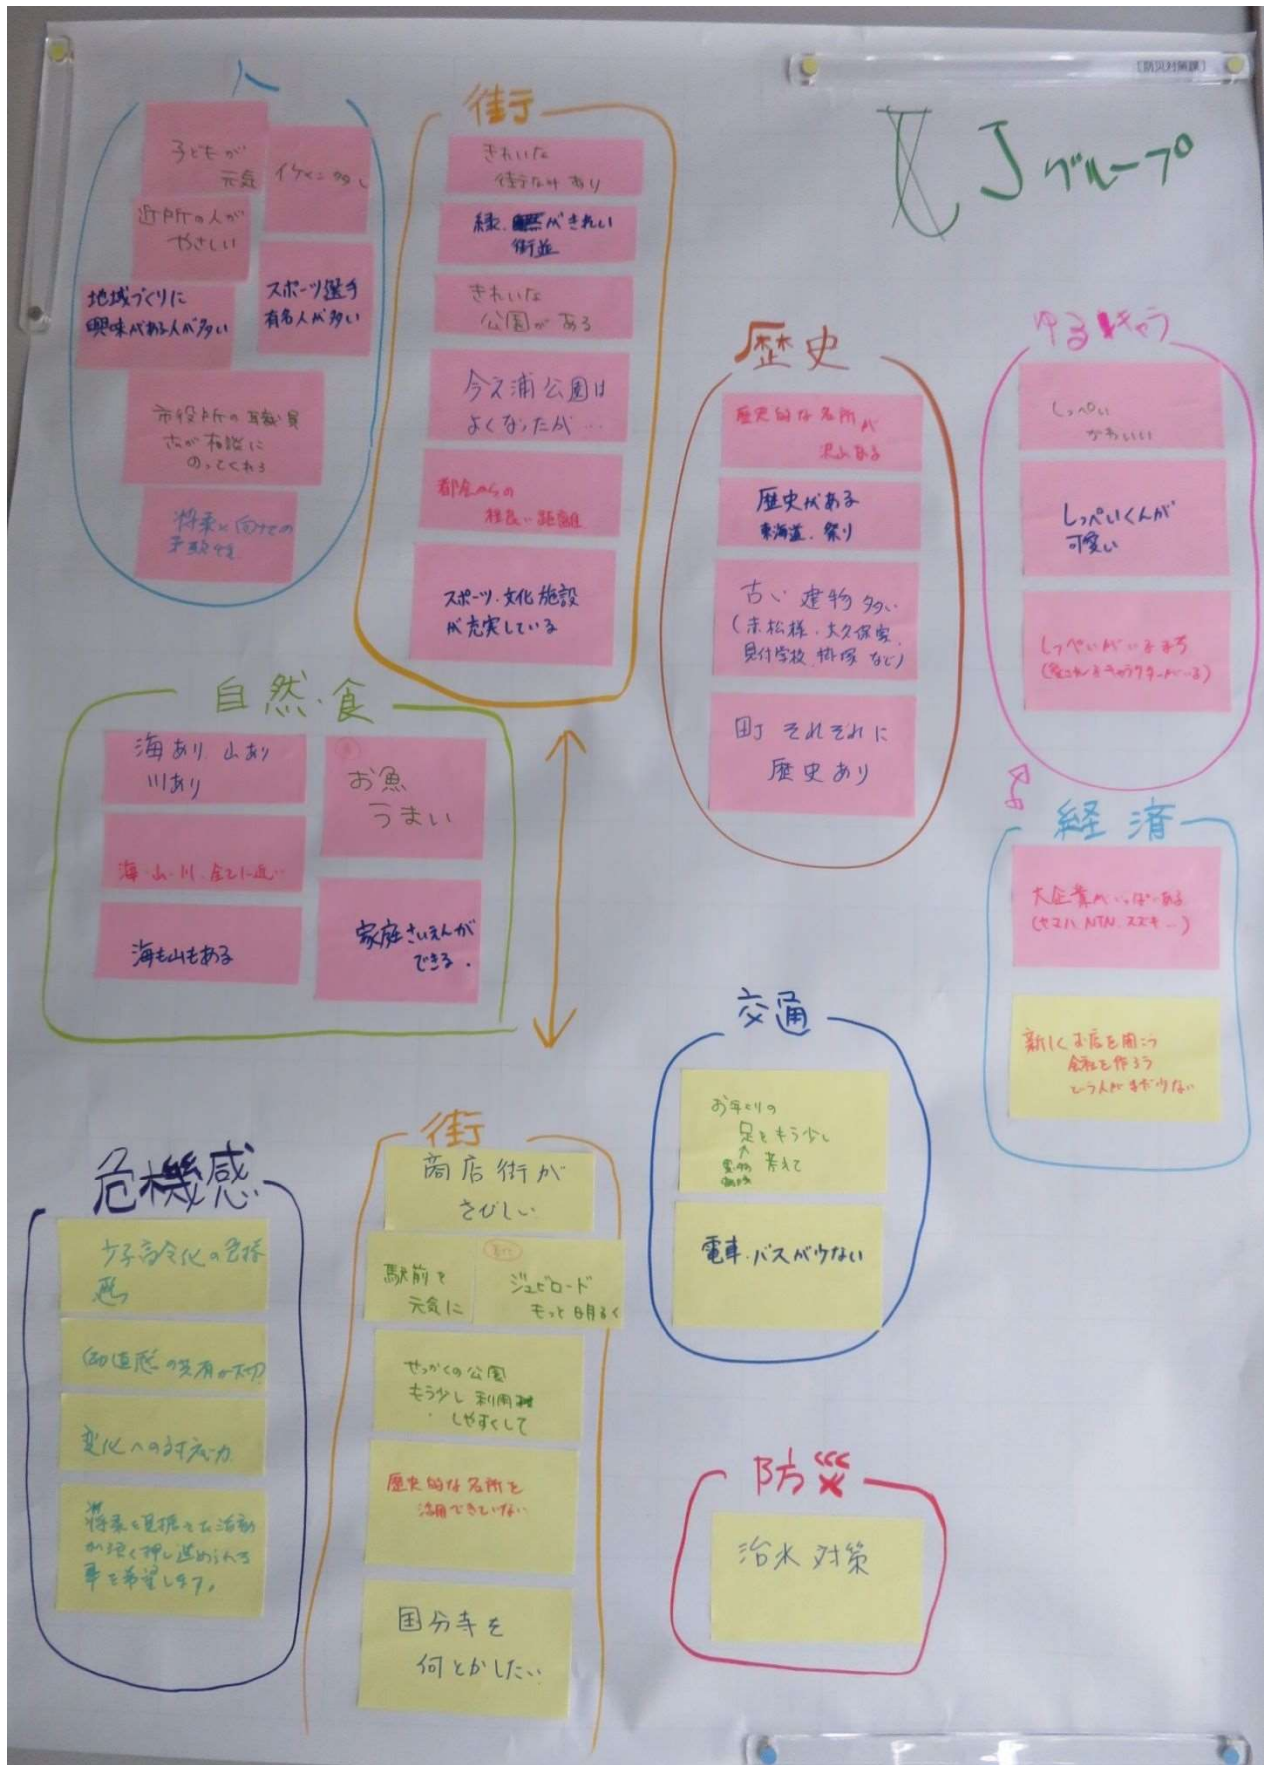 [防災対策課]
Jグループ
人
子どもが
元気
イケメン多し
近所の人が
やさしい
地域づくりに
興味がある人が多い
スポーツ選手
有名人が多い
市役所の職員
さんが相談に
のってくれる
将来に向けての
街
きれいな
街なみあり
緑、がきれい
街並
きれいな
公園がある
今之浦公園は
よくなったが…
都会からの
程良い距離
スポーツ、文化施設
が充実している
歴史
歴史的な名所が
沢山ある
歴史がある
東海道、祭り
古い建物多い
(赤松様、大久保家、
見付学校、掛塚など)
町それぞれに
歴史あり
ゆるキャラ
しっぺい
かわいい
しっぺいくんが
可愛い
しっぺいがいるまち
(愛されるキャラクターがいる)
自然・食
海あり山あり
川あり
お魚
うまい
海・山・川・全てに近い
海も山もある
家庭さいえんが
できる.
経済
大企業がいっぱいある
(ヤマハ、NTN、スズキ…)
新しくお店を開こう
会社を作ろう
という人がまだ少ない
交通
お年よりの
足をもう少し
考えて
電車・バスが少ない
危機感
少子高令化の危機
感
価値感の共有が大切
変化への対応力
将来を見据えた活動
が強く押し進められる
事を希望します。
街
商店街が
さびしい
駅前を
元気に
ジュビロード
もっと明るく
せっかくの公園
もう少し利用
しやすくして
歴史的な名所を
活用できていない
国分寺を
何とかしたい
防災
治水対策